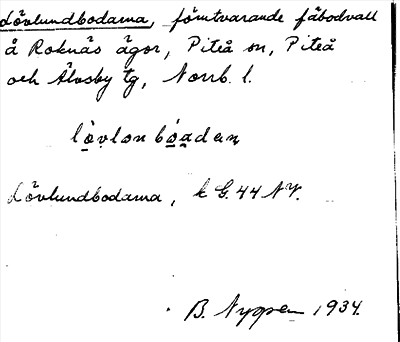 Lövlundbodarna, förutvarande fäbodvall
å Roknäs ägor, Piteå sn, Piteå
och Älvsby tg, Norrb. l.
lövlonbóadaṇ
Lövlundbodarna, k G. 44 NV.
B. Nygren 1934.